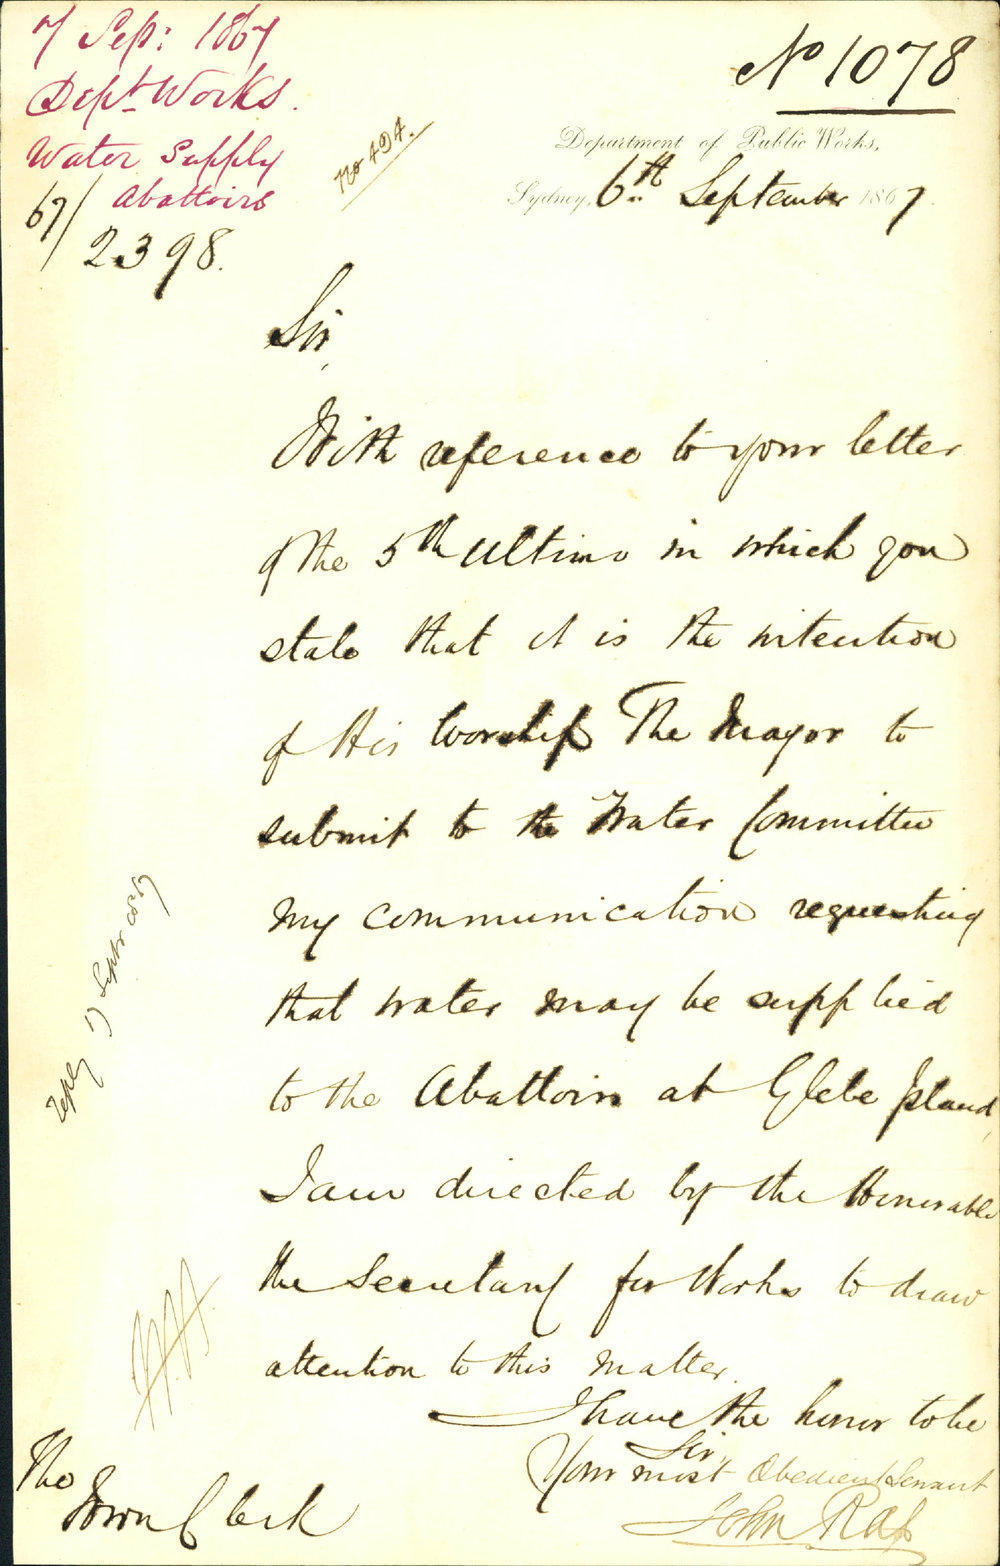 7 Sep: 1867
Dept Works.
Water Supply
Abattoirs
67/
2398.
No 494.
No 1078
Department of Public Works,
Sydney, 6th September 1867.
Sir,
With reference to your letter
of the 5th Ultimo in which you
state that it is the intention
of His Worship The Mayor to
submit to the Water Committee
my communication requesting
that water may be supplied
to the Abattoirs at Glebe Island,
I am directed by the Honorable
the Secretary for Works to draw
attention to this matter.
I have the honor to be
Sir,
Your most Obedient Servant
John Rae
The
Town Clerk
Reply Septr